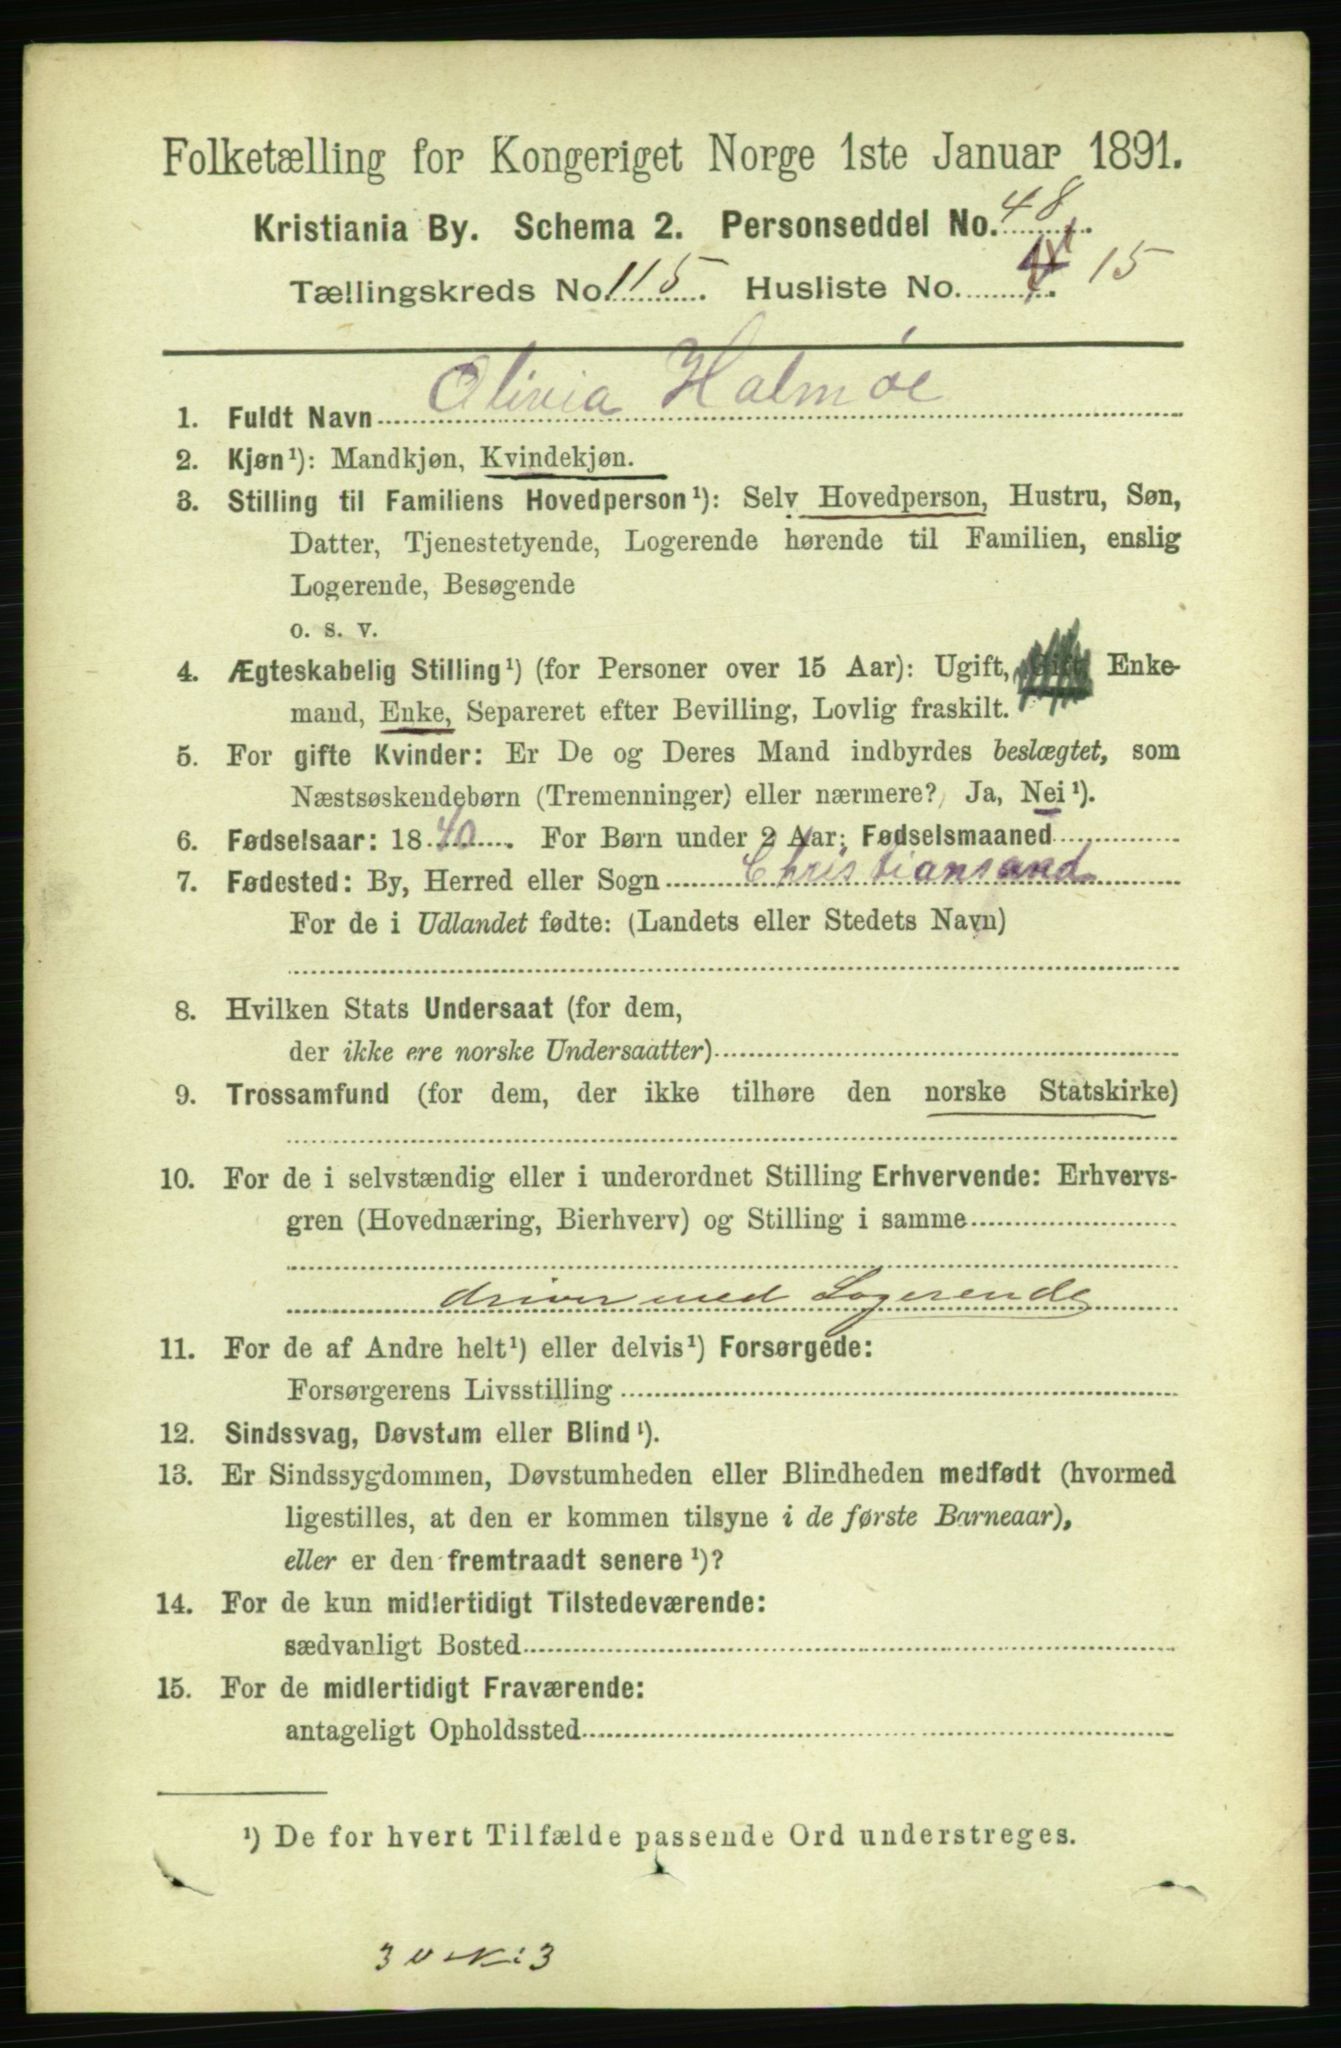 Folketælling for Kongeriget Norge 1ste Januar 1891.
Kristiania By. Schema 2. Personseddel No. 48.
Tællingskreds No. 115. Husliste No. 15
1. Fuldt Navn Olivia Halmøe
2. Kjøn¹): Mandkjøn, Kvindekjøn.
3. Stilling til Familiens Hovedperson¹): Selv Hovedperson, Hustru, Søn,
Datter, Tjenestetyende, Logerende hørende til Familien, enslig
Logerende, Besøgende
o. s. v.
4. Ægteskabelig Stilling¹) (for Personer over 15 Aar): Ugift, Enke-
mand, Enke, Separeret efter Bevilling, Lovlig fraskilt.
5. For gifte Kvinder: Er De og Deres Mand indbyrdes beslægtet, som
Næstsøskendebørn (Tremenninger) eller nærmere? Ja, Nei¹).
6. Fødselsaar: 1840. For Børn under 2 Aar: Fødselsmaaned
7. Fødested: By, Herred eller Sogn Christiansand
For de i Udlandet fødte: (Landets eller Stedets Navn)
8. Hvilken Stats Undersaat (for dem,
der ikke ere norske Undersaatter)
9. Trossamfund (for dem, der ikke tilhøre den norske Statskirke)
10. For de i selvstændig eller i underordnet Stilling Erhvervende: Erhvervs-
gren (Hovednæring, Bierhverv) og Stilling i samme
driver med Logerende
11. For de af Andre helt¹) eller delvis¹) Forsørgede:
Forsørgerens Livsstilling
12. Sindssvag, Døvstum eller Blind¹).
13. Er Sindssygdommen, Døvstumheden eller Blindheden medfødt (hvormed
ligestilles, at den er kommen tilsyne i de første Barneaar),
eller er den fremtraadt senere¹)?
14. For de kun midlertidigt Tilstedeværende:
sædvanligt Bosted
15. For de midlertidigt Fraværende:
antageligt Opholdssted
¹) De for hvert Tilfælde passende Ord understreges.